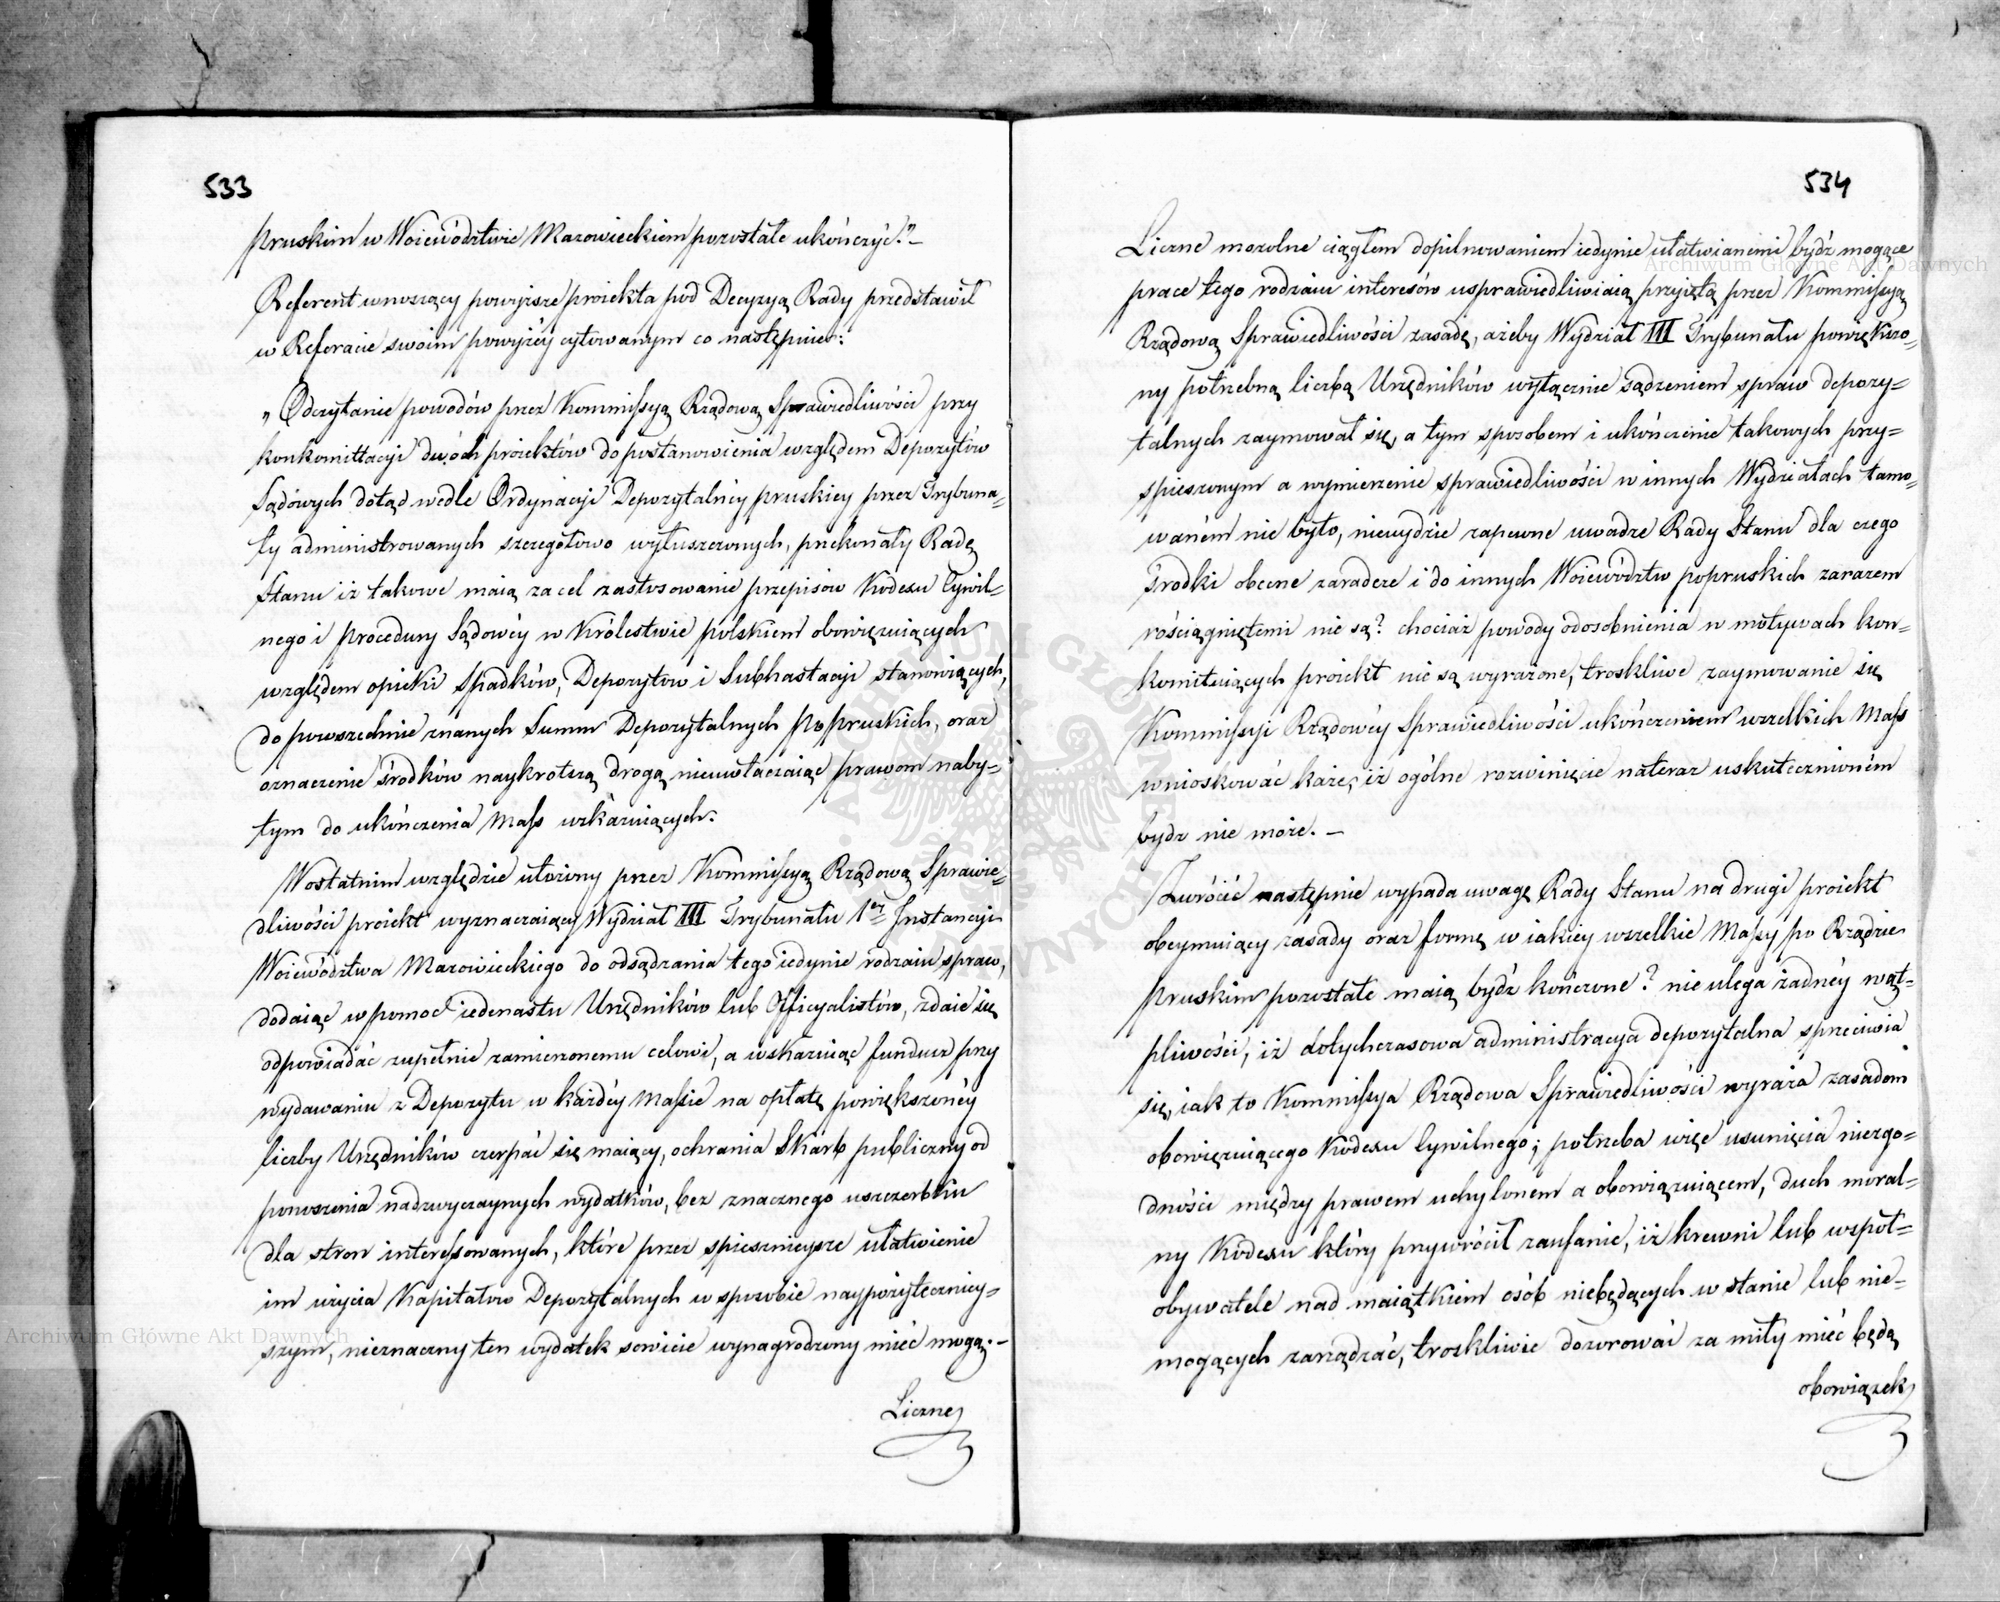 533
pruskim w Woiewództwie Mazowieckiem pozostałe ukończyć."—
Referent wnoszący powyższe proiekta pod Decyzyą Rady przedstawił
w Referacie swoim powyżéy cytowanym co następuie:
„Odczytanie powodów przez Kommissyą Rządową Sprawiedliwości przy
konkomittacyi dwóch proiektów do postanowienia względem Depozytów
Sądówych dotąd wedle Ordynacyi Depozytalnéy pruskiey przez Trybuna-
ły administrowanych szczegółowo wyłuszczonych, przekonały Radę
Stanu iż takowe maią za cel zastosowanie przepisów Kodexu Cywil-
nego i procedury Sądowéy w Królestwie polskiem obowięzuiących
względem opieki Spadków, Depozytów i Subhastacyi stanowiących,
do powszechnie znanych Summ Depozytalnych po pruskich, oraz
oznaczenie środków naykrotszą drogą nieuwłaczaiąc prawom naby-
tym do ukończenia Mass wskazuiących.
W ostatnim względzie ułożony przez Kommissyą Rządową Sprawie-
dliwości proiekt wyznaczaiący Wydział III Trybunału 1ey Instancyi
Woiewództwa Mazowieckiego do odsądzania tego iedynie rodzaiu spraw,
dodaiąc w pomoc iedenastu Urzędników lub Officyalistów, zdaie się
odpowiadać zupełnie zamierzonemu celowi, a wskazuiąc fundusz przy
wydawaniu z Depozytu w każdéy Massie na opłatę powiększonéy
liczby Urzędników czerpać się maiący, ochrania Skarb publiczny od
ponoszenia nadzwyczaynych wydatków, bez znacznego uszczerbku
dla stron interessowanych, które przez spiesznieysze ułatwienie
im użycia Kapitałów Depozytalnych w sposobie naypożyteczniey-
szym, nieznaczny ten wydatek sowicie wynagrodzony mieć mogą.—
Liczne
534
Liczne mozolne ciągłem dopilnowaniem iedynie ułatwianemi bydź mogące
prace tego rodzaiu interesów usprawiedliwiaią przyiętą przez Kommissyą
Rządową Sprawiedliwości zasadę, ażeby Wydział III Trybunału powiększo-
ny potrzebną liczbą Urzędników wyłącznie sądzeniem spraw depozy-
talnych zaymował się, a tym sposobem i ukończenie takowych przy-
spieszonym a wymierzenie sprawiedliwości w innych Wydziałach tamo-
waném nie było, niewydzie zapewne uwadze Rady Stanu dla czego
środki obecne zaradcze i do innych Woiewództw popruskich zarazem
rościągniętemi nie są? chociaż powody odosobnienia w motywach kon-
komituiących proiekt nie są wyrażone, troskliwe zaymowanie się
Kommissyi Rządowéy Sprawiedliwości ukończeniem wszelkich Mass
wnioskować każe, iż ogólne rozwinięcie nateraz uskutecznioném
bydź nie może. —
Zwrócić następnie wypada uwagę Rady Stanu na drugi proiekt
obeymuiący zasady oraz formę w iakiey wszelkie Massy po Rządzie
pruskim pozostałe maią bydź kończone? nie ulega żadnéy wąt-
pliwości, iż dotychczasowa administracya depozytalna sprzeciwia
się, iak to Kommissya Rządowa Sprawiedliwości wyraża zasadom
obowięzuiącego Kodexu Cywilnego; potrzeba więc usunięcia niezgo-
dności między prawem uchylonem a obowiązuiącem, duch moral-
ny Kodexu który przywrócił zaufanie, iż krewni lub współ-
obywatele nad maiątkiem osób niebędących w stanie lub nie-
mogących zarządzać, troskliwie dozorować za miły mieć będą
obowiązek
Archiwum Główne Akt Dawnych
Archiwum Główne Akt Dawnych
ARCHIWUM GŁÓWNE AKT DAWNYCH